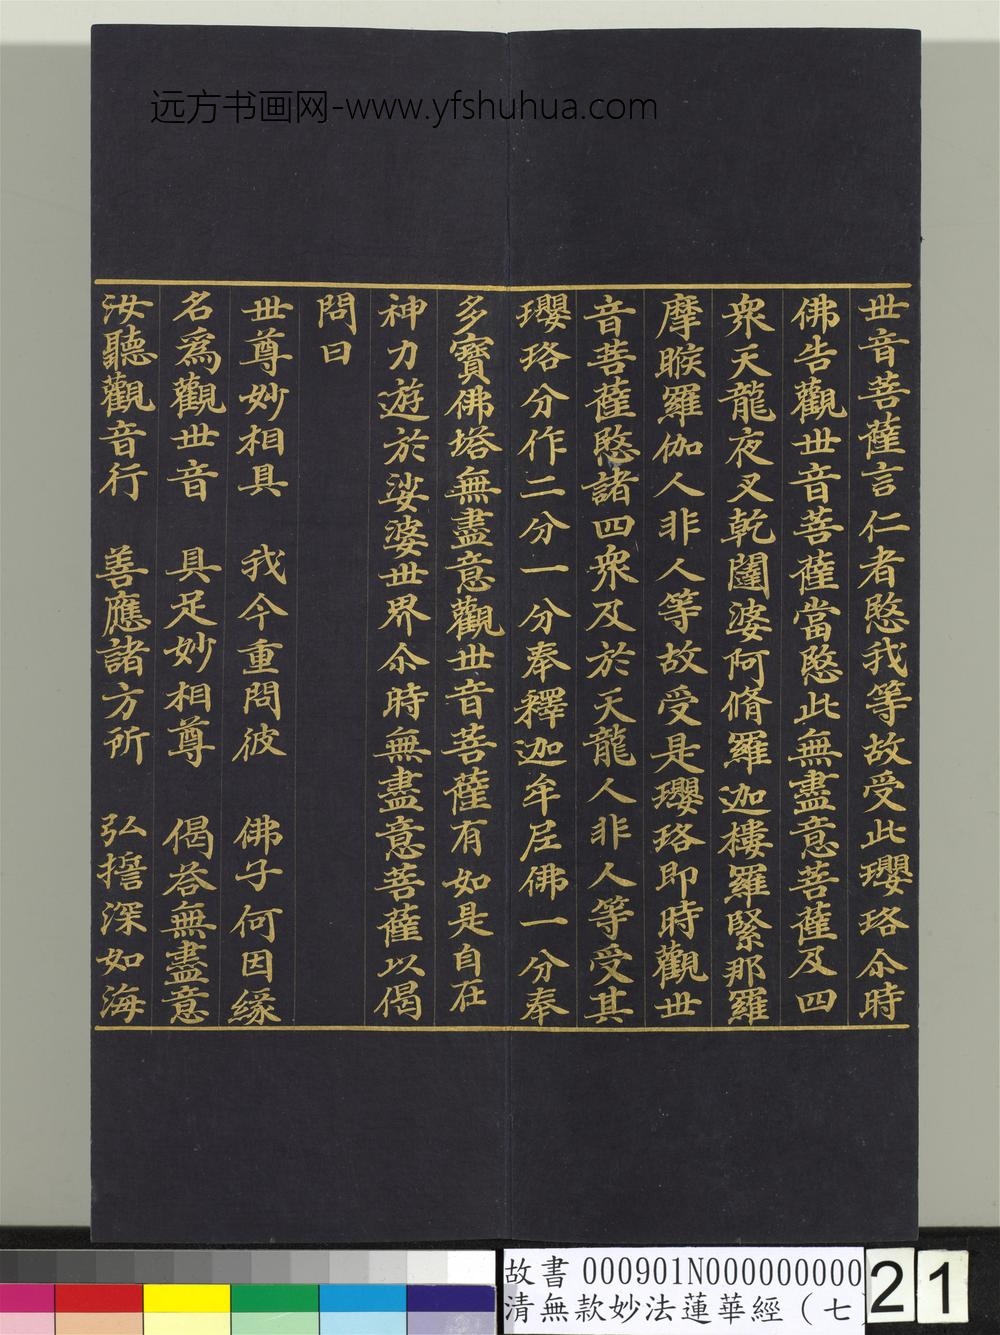 远方书画网-www.yfshuhua.com
世音菩薩言仁者愍我等故受此瓔珞尒時
佛告觀世音菩薩當愍此無盡意菩薩及四
衆天龍夜叉乾闥婆阿脩羅迦樓羅緊那羅
摩睺羅伽人非人等故受是瓔珞即時觀世
音菩薩愍諸四衆及於天龍人非人等受其
瓔珞分作二分一分奉釋迦牟尼佛一分奉
多寶佛塔無盡意觀世音菩薩有如是自在
神力遊於娑婆世界尒時無盡意菩薩以偈
問曰
世尊妙相具　我今重問彼　佛子何因緣
名爲觀世音　具足妙相尊　偈答無盡意
汝聽觀音行　善應諸方所　弘誓深如海
故書 000901N000000000
清無款妙法蓮華經（七）
21